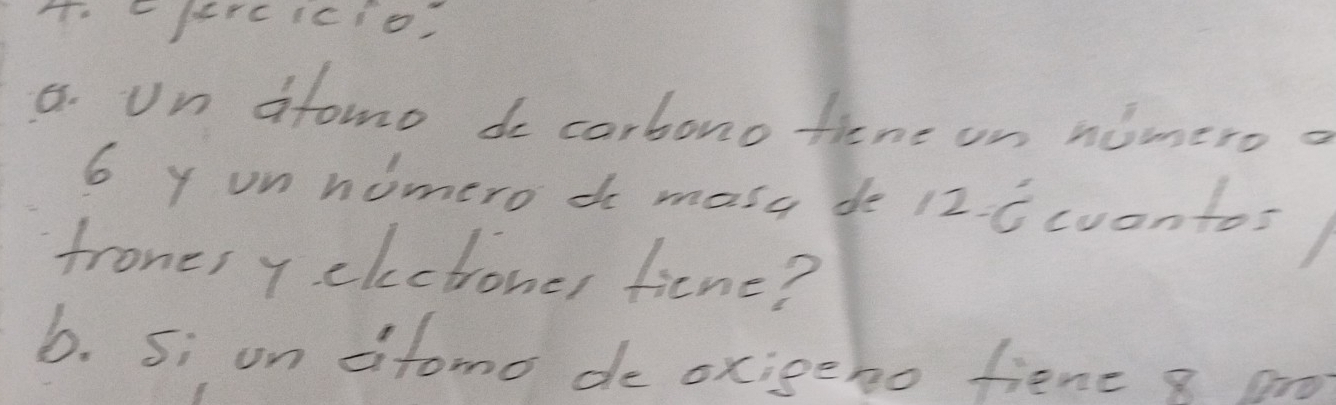 4. Ejercicio:
a. Un átomo de carbono tiene un número
6 y un número de masa de 12. ¿cuantos
trones y electrones tiene?
b. Si un átomo de oxigeno tiene 8 pro